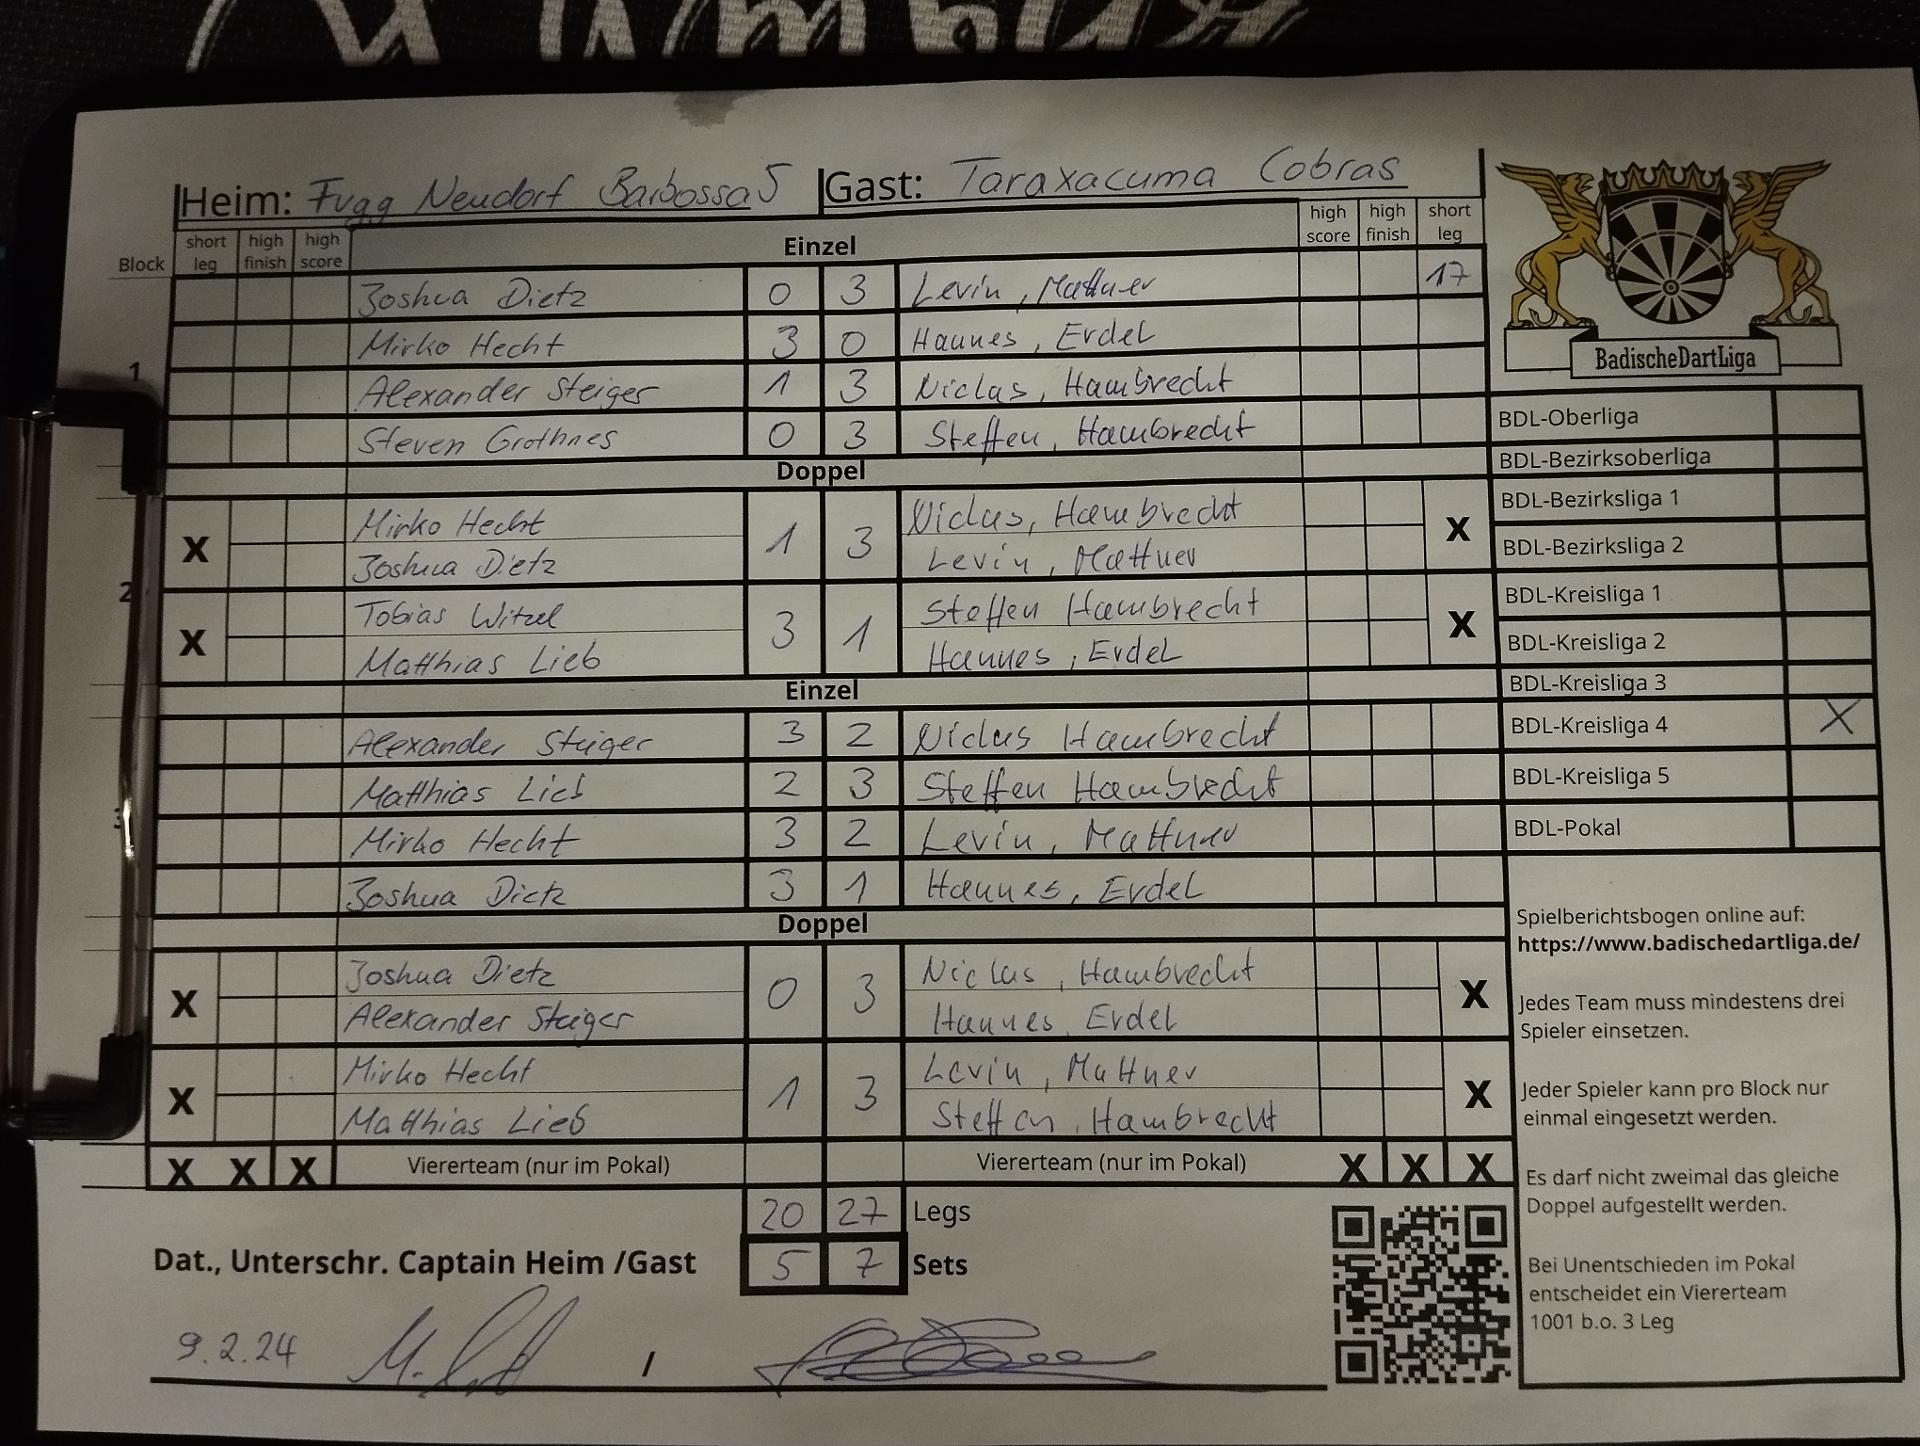 Heim: Fugg Neudorf Barbossa 5 Gast: Taraxacuma Cobras
Block short leg high finish high score Einzel high score high finish short leg
Joshua Dietz 0 3 Levin, Mattner 17
Mirko Hecht 3 0 Hannes, Erdel
1
Alexander Steiger 1 3 Niclas, Hambrecht
Steven Grothnes 0 3 Steffen, Hambrecht
Doppel
Mirko Hecht Niclas, Hambrecht
X 1 3 X
Joshua Dietz Levin, Mattner
2
Tobias Witzel Steffen Hambrecht
X 3 1 X
Matthias Lieb Hannes, Erdel
Einzel
Alexander Steiger 3 2 Niclas Hambrecht
Matthias Lieb 2 3 Steffen Hambrecht
3
Mirko Hecht 3 2 Levin, Mattner
Joshua Dietz 3 1 Hannes, Erdel
Doppel
Joshua Dietz Niclas, Hambrecht
X 0 3 X
Alexander Steiger Hannes, Erdel
Mirko Hecht Levin, Mattner
X 1 3 X
Matthias Lieb Steffen, Hambrecht
X X X Viererteam (nur im Pokal) Viererteam (nur im Pokal) X X X
20 27 Legs
Dat., Unterschr. Captain Heim /Gast 5 7 Sets
9.2.24 /
BadischeDartLiga
BDL-Oberliga
BDL-Bezirksoberliga
BDL-Bezirksliga 1
BDL-Bezirksliga 2
BDL-Kreisliga 1
BDL-Kreisliga 2
BDL-Kreisliga 3
BDL-Kreisliga 4 X
BDL-Kreisliga 5
BDL-Pokal
Spielberichtsbogen online auf:
https://www.badischedartliga.de/
Jedes Team muss mindestens drei
Spieler einsetzen.
Jeder Spieler kann pro Block nur
einmal eingesetzt werden.
Es darf nicht zweimal das gleiche
Doppel aufgestellt werden.
Bei Unentschieden im Pokal
entscheidet ein Viererteam
1001 b.o. 3 Leg